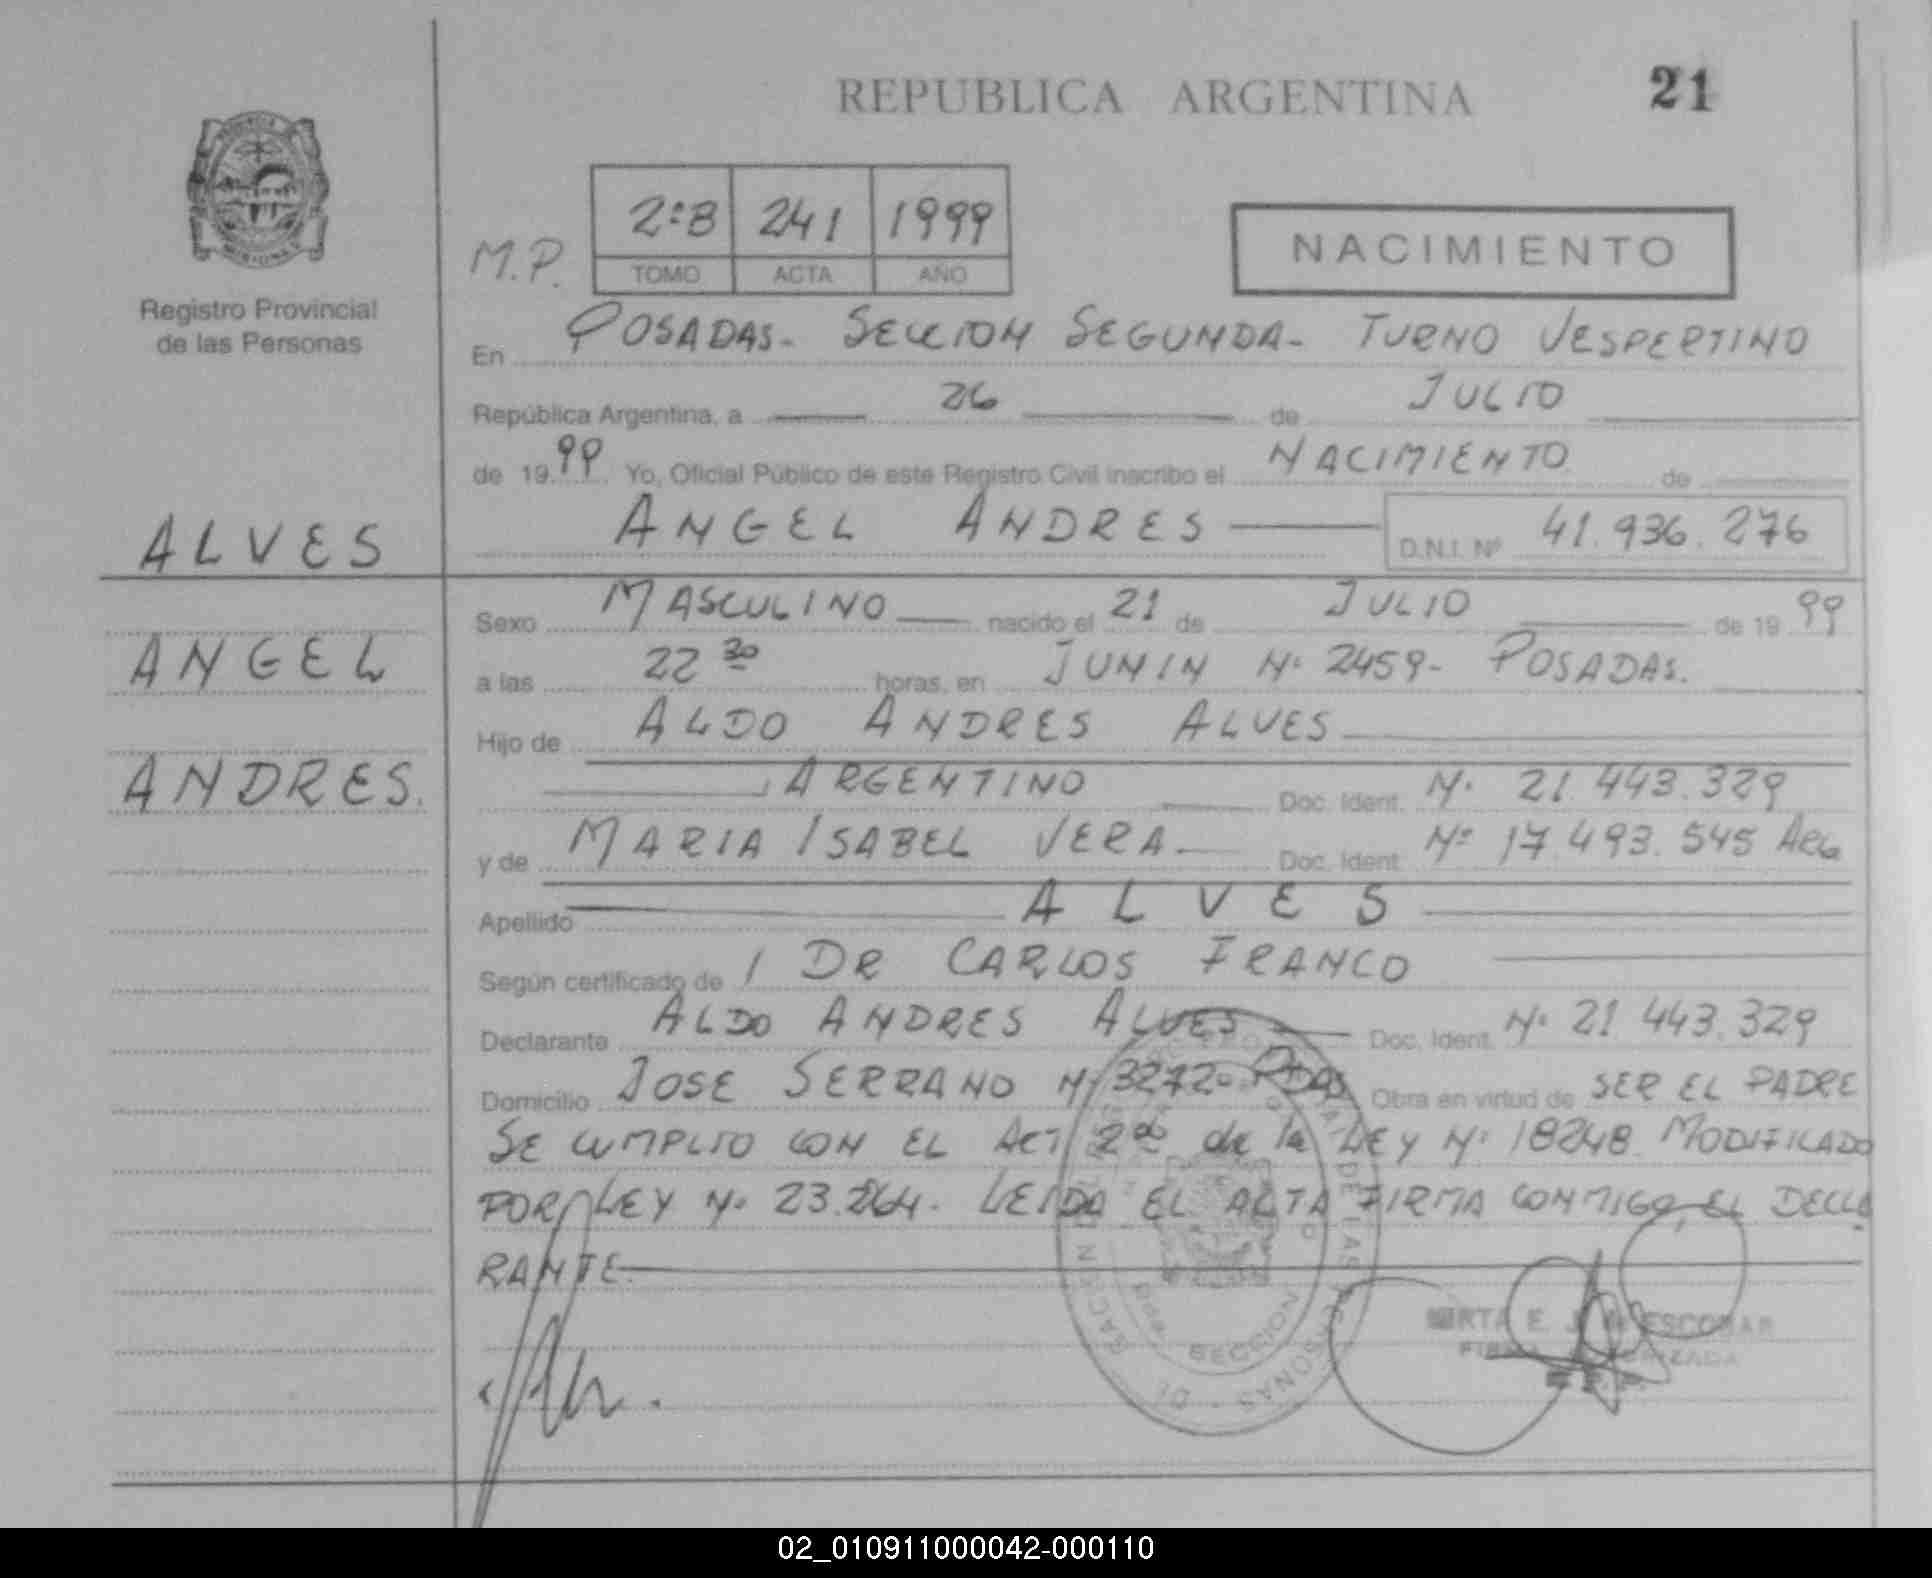 REPUBLICA ARGENTINA
21
Registro Provincial
de las Personas
M.P.
2ºB 241 1999
TOMO ACTA AÑO
NACIMIENTO
En POSADAS- SECCION SEGUNDA- TURNO VESPERTINO
República Argentina, a 26 de JULIO
de 19 99 Yo, Oficial Público de este Registro Civil inscribo el NACIMIENTO de
ALVES
ANGEL ANDRES D.N.I. Nº 41.936.276
Sexo MASCULINO nacido el 21 de JULIO de 19 99
ANGEL
a las 22 30 horas, en JUNIN Nº 2459- POSADAS.
Hijo de ALDO ANDRES ALVES
ANDRES.
ARGENTINO Doc. Ident. Nº 21.443.329
y de MARIA ISABEL VERA Doc. Ident. Nº 17.493.545 ARG
Apellido ALVES
Según certificado de DR CARLOS FRANCO
Declarante ALDO ANDRES ALVES Doc. Ident. Nº 21.443.329
Domicilio JOSE SERRANO Nº 3272- PDAS Obra en virtud de SER EL PADRE
SE CUMPLIO CON EL ART 2do de la LEY Nº 18248 MODIFICADO
POR LEY Nº 23.264. LEIDA EL ACTA FIRMA CONMIGO, EL DECLA
RANTE.
DE LAS PERSONAS
SECCION
MIRTA E. ESCOBAR
02_010911000042-000110